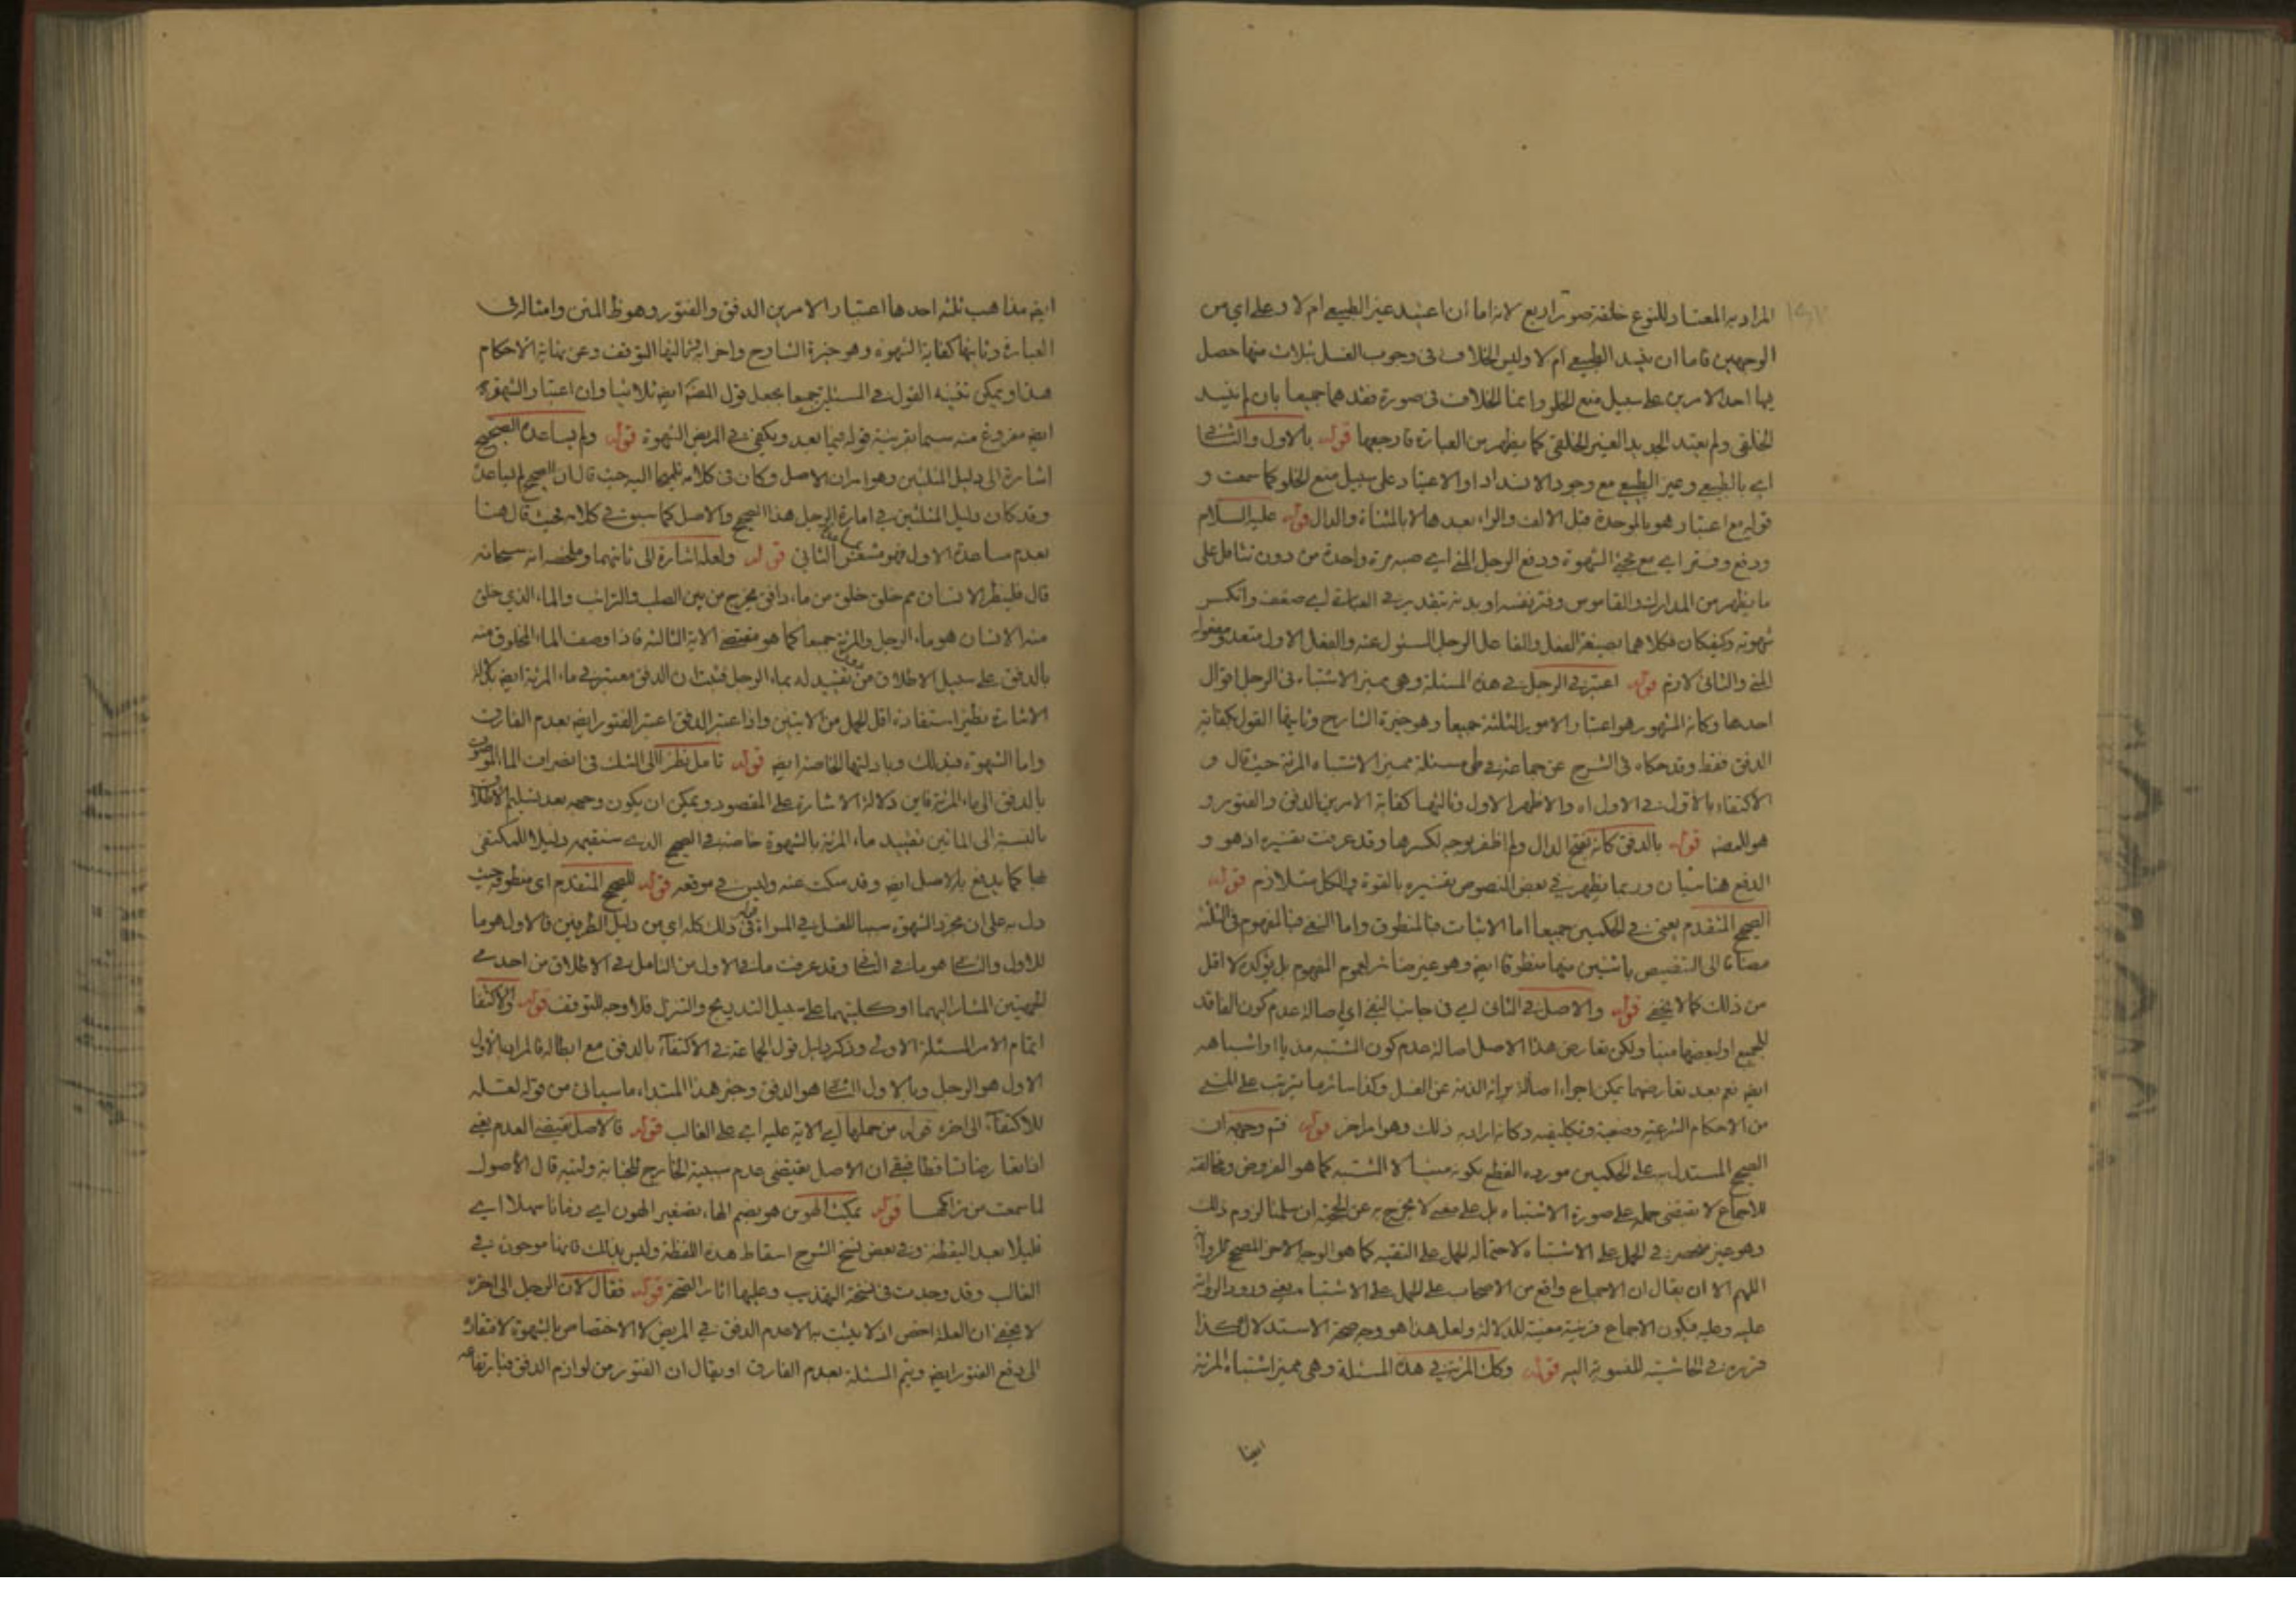 المراد به المعتاد للنوع خلقة صور اربع لانه اما ان اعتيد غير الطبيعي ام لا وعلى اي من
الوجهين فاما ان يفسد الطبيعي ام لا وليس الخلاف في وجوب الغسل بثلاث منها حصل
فيها احد الامرين على سبيل منع الخلو وانما الخلاف في صورة فقدهما جميعا بان لم يفسد
الخلقي ولم يعتد الجديد الغير الخلقي كما يظهر من العبارة فارجعها قوله بالاول والثاني
اي بالطبيعي وغير الطبيعي مع وجود الانسداد او الاعتياد على سبيل منع الخلو كما سمعت و
قوله مع اعتبار هو بالموحدة قبل الالف والراء بعدها لا بالمثناة والدال قوله عليه السلام
ودفع وفتر اي مع مجيء الشهوة ودفع الرجل المني اي صبه مرة واحدة من دون تثاقل على
ما يظهر من المدارك والقاموس وفتر نفسه او بدنه بتقدير في العبارة اي ضعف وانكسر
شهوته وكيفكان فكلاهما بصيغة الفعل والفاعل الرجل المسئول عنه والفعل الاول متعد ومفعوله
المني والثاني لازم قوله اعتبر في الرجل في هذه المسئلة وهي مميز الاشتباه في الرجل اقوال
احدها وكانه المشهور هو اعتبار الامور الثلثة جميعا وهو خيرة الشارح وثانيها القول بكفاية
الدفق فقط وقد حكاه في الشرح عن جماعة في طي مسئلة مميز الاشتباه المرئة حيث قال و
الاكتفاء بالاول في الاول اه والاظهر الاول وثالثها كفاية الامرين الدفق والفتور و
هو للمصنف قوله بالدفق كانه بفتح الدال ولم اظفر بوجه لكسرها وقد عرفت تفسيره اذ هو و
الدفع هنا سيان وربما يظهر في بعض النصوص تفسيره بالقوة والكل متلازم قوله
الصحيح المتقدم يعني في الحكمين جميعا اما الاثبات فبالمنطوق واما النفي فبالمفهوم في الثلثة
مضافا الى التنصيص باثنين منها منطوقا ايضا وهو غير ضائر لعموم المفهوم بل يؤكده لا اقل
من ذلك كما لا يخفى قوله والاصل في الثاني اي في جانب النفي اي اصالة عدم كون الفاقد
للجميع او لبعضها منيا ولكن تعارض هذا الاصل اصالة عدم كون المشتبه مذيا او اشباهه
ايضا نعم بعد تعارضهما يمكن اجراء اصالة برائة الذمة عن الغسل وكذا سائر ما يترتب على المني
من الاحكام الشرعية وضعية وتكليفية وكانه اراد به ذلك وهو امر اخر قوله فتم وجهه ان
الصحيح المستدل به على الحكمين مورده القطع بكونه منيا لا المشتبه كما هو المفروض ومخالفته
للاجماع لا تقتضي حمله على صورة الاشتباه بل على معنى لا يخرج به عن الحجية ان سلمنا لزوم ذلك
وهو غير منحصر في الحمل على الاشتباه لاحتماله للحمل على التقية كما هو الوجه الاخر المصحح للرواية
اللهم الا ان يقال ان الاجماع واقع من الاصحاب على الحمل على الاشتباه يعني ورود الرواية
عليه وعليه فيكون الاجماع قرينة معينة للدلالة ولعل هذا هو وجه صحة الاستدلال كذا
قرره في الحاشية المنسوبة اليه قوله وكك المرئة في هذه المسئلة وهي مميز اشتباه المرئة
ايضا
ايضا مذاهب ثلثة احدها اعتبار الامرين الدفق والفتور وهو ظ المتن وامثاله في
العبارة وثانيها كفاية الشهوة وهو خيرة الشارح واخرى ثالثها التوقف وعن نهاية الاحكام
هذا ويمكن تثنية القول في المسئلة جميعا بجعل قول المصنف ايضا ثلاثيا وان اعتبار الشهوة
ايضا مفروغ منه سيما بقرينة قوله فيما بعد ويكفي في المريض الشهوة قوله ولم يساعده الصحيح
اشارة الى دليل المثلثين وهو امران الاصل وكان في كلامه تلميحا اليه حيث قال ان الصحيح لم يساعد
وقد كان دليل المثلثين في امارة الرجل هذا الصحيح والاصل كما سبق في كلامه فحيث قال هنا
بعدم مساعدة الاول فهو مشعر بمساعدة الثاني قوله ولعله اشارة الى ثانيهما وملخصه انه سبحانه
قال فلينظر الانسان مم خلق خلق من ماء دافق يخرج من بين الصلب والترائب والماء الذي خلق
منه الانسان هو ماء الرجل والمرئة جميعا كما هو مقتضى الاية الثالثة فاذا وصف الماء المخلوق منه
بالدفق على سبيل الاطلاق من دون تقييد له بماء الرجل فثبت ان الدفق معتبر في ماء المرئة ايضا
الاشارة نظير استفادة اقل الحمل من الايتين واذا اعتبر الدفق اعتبر الفتور ايضا بعدم الفارق
واما الشهوة فبذلك وبادلتها الخاصة ايضا قوله تامل نظرا الى الشك في انصراف الماء الموصوف
بالدفق الى ماء المرئة فاين دلالة الاشارة على المقصود ويمكن ان يكون وجهه بعد تسليم الاطلاق
بالنسبة الى المائين تقييد ماء المرئة بالشهوة خاصة في الصحيح الذي سنقيمه دليلا للمكتفي
بها كما يدفع به الاصل ايضا وقد سكت عنه وليس في موقعه قوله للصحيح المتقدم اي منطوقه حيث
دل به على ان مجرد الشهوة سببا للغسل في المراة قوله في ذلك كله اي من دليل الطرفين فالاول هو ما
للاول والثاني هو ما في الثاني وقد عرفت ما في الاول من التامل في الاطلاق من احدى
الجهتين المشار اليهما او كلتيهما على سبيل التدريج والتنزل فلا وجه للتوقف قوله والاكتفاء
اتمام الامر المسئلة الاولى وذكر دليل قول الجماعة في الاكتفاء بالدفق مع ابطاله فالمراد بالاول
الاول هو الرجل وبالاول الثاني هو الدفق وخبر هذا المبتداء ما سياتي من قوله لعله
للاكتفاء الى اخره قوله من حملها اي الاية عليه اي على الغالب قوله فالاصل يقتضي العدم يعني
اذا تعارضا تساقطا فبقي ان الاصل يقتضي عدم سببية الخارج للجنابة وليته قال الاصول
لما سمعت من تراكمها قوله يمكث الهوين هو بضم الهاء تصغير الهون اي زمانا سهلا اي
قليلا بعد اليقظة وفي بعض نسخ الشرح اسقاط هذه اللفظة وليس بذلك فانها موجود في
الغالب وقد وجدت في نسخة التهذيب وعليها اثار الصحة قوله فقال لان الرجل الى اخره
لا يخفى ان العلة اخص اذ لا يثبت به الا عدم الدفق في المريض لا الاختصاص بالشهوة لافتقاره
الى دفع الفتور ايضا ويتم المسئلة بعدم الفارق او يقال ان الفتور من لوازم الدفق فبارتفاعه